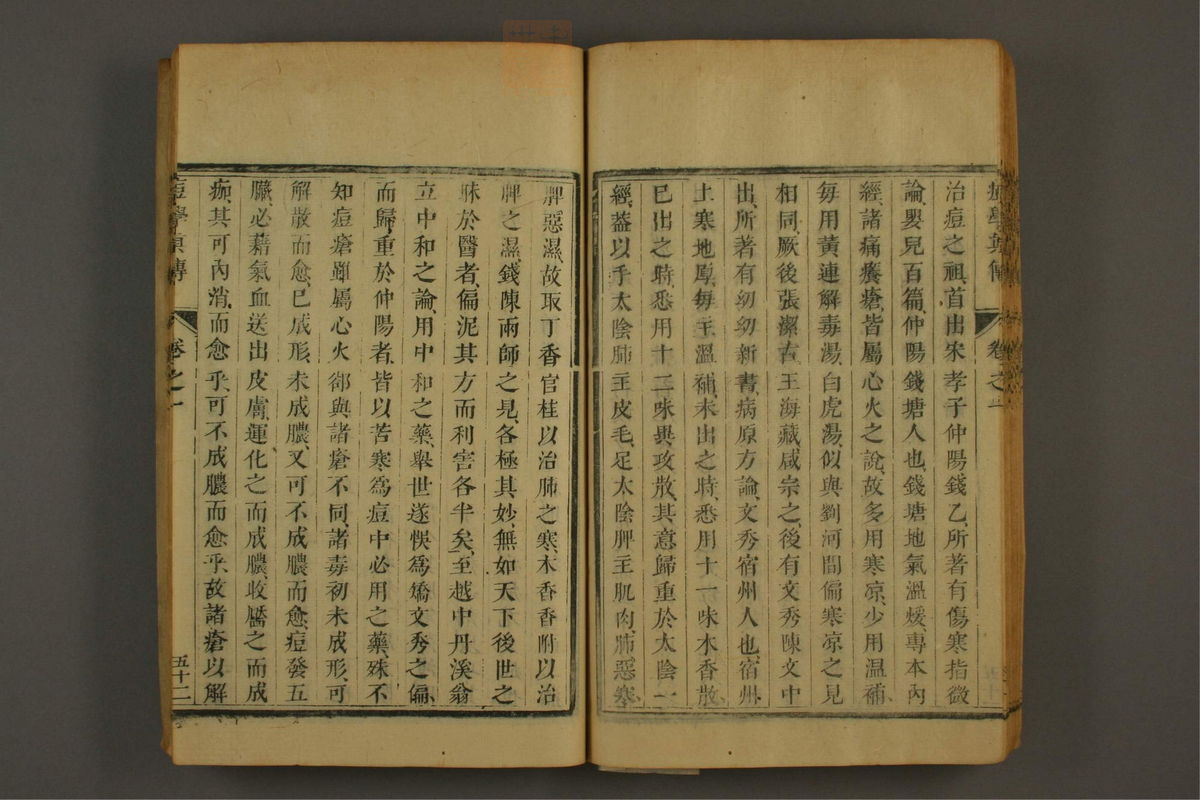 治痘之祖、首出宋孝子仲陽錢乙、所著有傷寒指微
論、嬰兒百篇、仲陽錢塘人也、錢塘地氣溫煖、專本內
經、諸痛痒瘡、皆屬心火之說、故多用寒凉、少用温補、
每用黃連解毒湯、白虎湯、似與劉河間偏寒凉之見
相同、厥後張潔古、王海藏、咸宗之、後有文秀陳文中
出、所著有幼幼新書、病原方論、文秀宿州人也、宿州
土寒地厚、每主溫補、未出之時、悉用十一味木香散、
已出之時、悉用十二味異攻散、其意歸重於太陰一
經、葢以手太陰肺主皮毛、足太陰脾主肌肉、肺惡寒、
脾惡濕、故取丁香官桂以治肺之寒、木香香附以治
脾之濕、錢陳兩師之見、各極其妙、無如天下後世之
昧於醫者、偏泥其方而利害各半矣、至越中丹溪翁
立中和之論、用中和之藥、舉世遂悞爲矯文秀之偏、
而歸重於仲陽者、皆以苦寒爲痘中必用之藥、殊不
知痘瘡雖屬心火、郤與諸瘡不同、諸毒初未成形、可
解散而愈、已成形、未成膿、又可不成膿而愈、痘發五
臟、必藉氣血送出皮膚、運化之而成膿、收靨之而成
痂、其可內消而愈乎、可不成膿而愈乎、故諸瘡以解
痘學真傳
卷之一
五十二